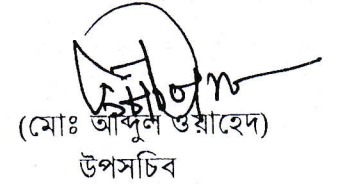 (মোঃ আব্দুল ওয়াহেদ)
উপসচিব